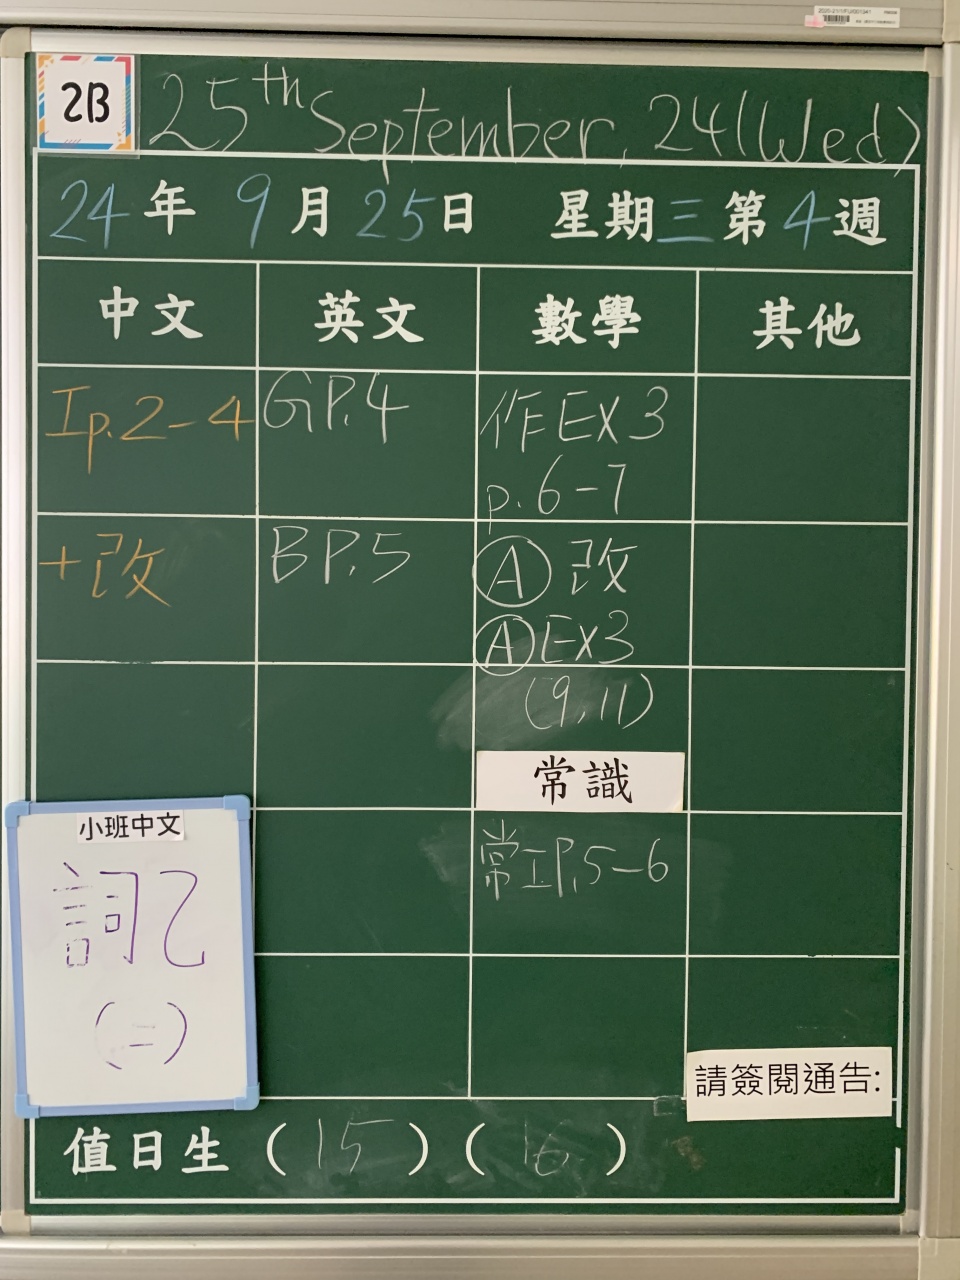 2B
25th September, 24(Wed)
24年 9月25日 星期三第4週
中文 英文 數學 其他
Ip.2-4
GP.4
作Ex3
p.6-7
+改
BP.5
Ⓐ改
ⒶEx3
(9,11)
常識
常工P.5-6
小班中文
詞乙
(二)
請簽閱通告:
值日生(15)(16)